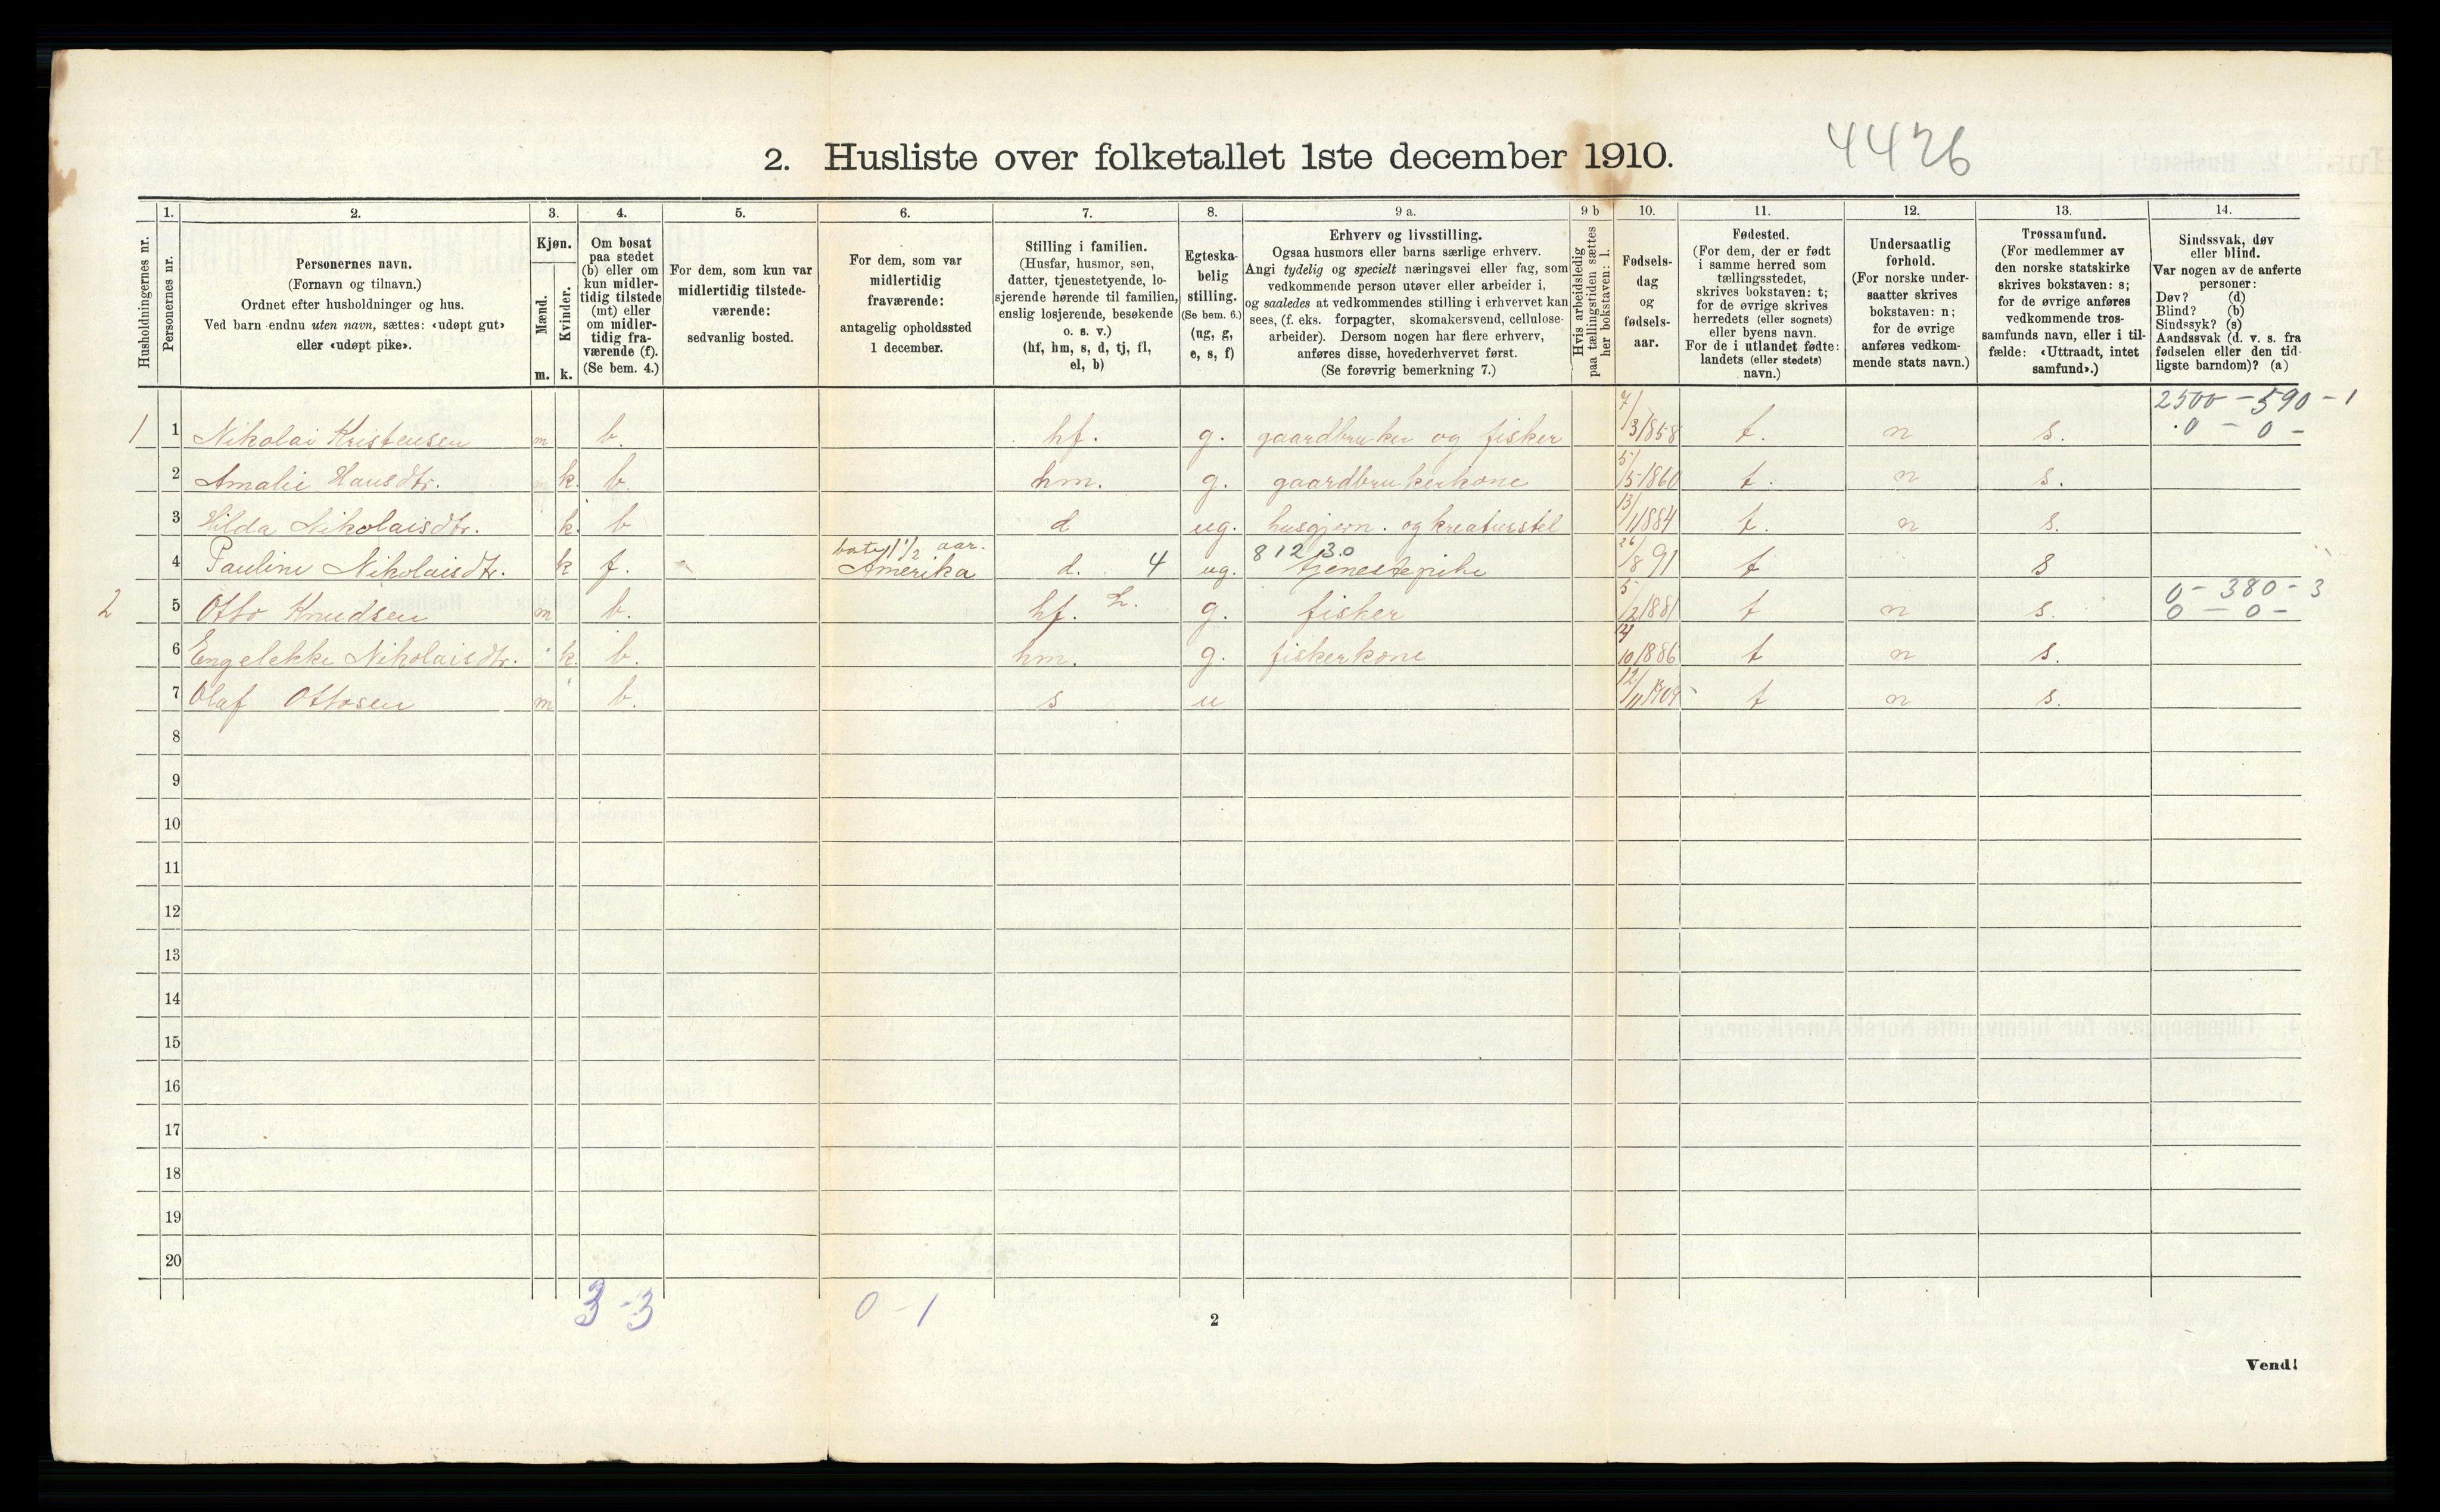 2. Husliste over folketallet 1ste december 1910.
4426
Husholdningernes nr.
1.
Personernes nr.
2.
Personernes navn.
(Fornavn og tilnavn.)
Ordnet efter husholdninger og hus.
Ved barn endnu uten navn, sættes: «udøpt gut»
eller «udøpt pike».
3.
Kjøn.
Mænd.
Kvinder.
m. k.
4.
Om bosat
paa stedet
(b) eller om
kun midler-
tidig tilstede
(mt) eller
om midler-
tidig fra-
værende (f).
(Se bem. 4.)
5.
For dem, som kun var
midlertidig tilstede-
værende:
sedvanlig bosted.
6.
For dem, som var
midlertidig
fraværende:
antagelig opholdssted
1 december.
7.
Stilling i familien.
(Husfar, husmor, søn,
datter, tjenestetyende, lo-
sjerende hørende til familien,
enslig losjerende, besøkende
o. s. v.)
(hf, hm, s, d, tj, fl,
el, b)
8.
Egteska-
belig
stilling.
(Se bem. 6.)
(ug, g,
e, s, f)
9 a.
Erhverv og livsstilling.
Ogsaa husmors eller barns særlige erhverv.
Angi tydelig og specielt næringsvei eller fag, som
vedkommende person utøver eller arbeider i,
og saaledes at vedkommendes stilling i erhvervet kan
sees, (f. eks. forpagter, skomakersvend, cellulose-
arbeider). Dersom nogen har flere erhverv,
anføres disse, hovederhvervet først.
(Se forøvrig bemerkning 7.)
9 b
Hvis arbeidsledig
paa tællingstiden sættes
her bokstaven: l.
10.
Fødsels-
dag
og
fødsels-
aar.
11.
Fødested.
(For dem, der er født
i samme herred som
tællingsstedet,
skrives bokstaven: t;
for de øvrige skrives
herredets (eller sognets)
eller byens navn.
For de i utlandet fødte:
landets (eller stedets)
navn.)
12.
Undersaatlig
forhold.
(For norske under-
saatter skrives
bokstaven: n;
for de øvrige
anføres vedkom-
mende stats navn.)
13.
Trossamfund.
(For medlemmer av
den norske statskirke
skrives bokstaven: s;
for de øvrige anføres
vedkommende tros-
samfunds navn, eller i til-
fælde: «Uttraadt, intet
samfund».)
14.
Sindssvak, døv
eller blind.
Var nogen av de anførte
personer:
Døv? (d)
Blind? (b)
Sindssyk? (s)
Aandssvak (d. v. s. fra
fødselen eller den tid-
ligste barndom)? (a)
2500 - 590 - 1
1 1 Nikolai Kristensen m b. hf. g. gaardbruker og fisker 7/3 1858 t. n s. 0 - 0 -
2 Amalie Hansdtr. k. b. hm. g. gaardbrukerkone 5/5 1860 t. n s.
3 Hilda Nikolaisdtr. k. b d ug. husgjern. og kreaturstel 13/1 1884 t. n s.
1 1/2 aar. 8 12 13.0
4 Pauline Nikolaisdtr. k f. Amerika d. 4 ug. tjenestepike 26/8 91 t s
0 - 380 - 3
2 5 Otto Knudsen m b. hf. g. fisker 5/2 1881 t n s. 0 - 0 -
6 Engelekke Nikolaisdtr. k. b. hm. g. fiskerkone 10 1886 t n s.
7 Olaf Ottosen m b. s u 12/11 1909 t n s.
8
9
10
11
12
13
14
15
16
17
18
19
20
3 - 3 0 - 1
2
Vend!